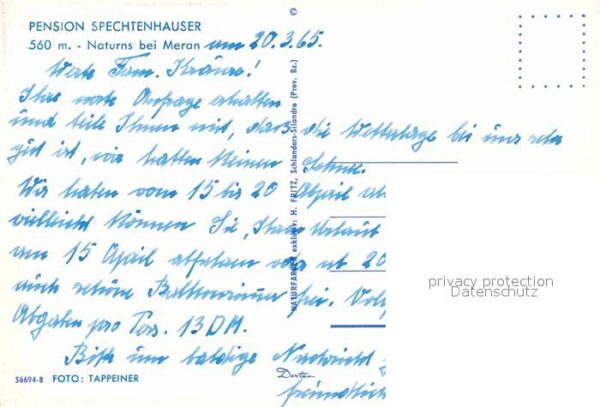 ©
PENSION SPECHTENHAUSER
560 m. - Naturns bei Meran am 20.3.65.
Werte Fam. Kränze!
Ihre werte Anfrage erhalten
und teile Ihnen mit, dass die Wetterlage bei uns sehr
gut ist, wir hatten keinen Schnee.
Wir haben vom 15 bis 20 April
vielleicht können Sie, Ihren Urlaub
am 15 April ab 20
auch schöne Balkonzimmer frei.
Abgaben pro Pers. 13 DM.
Bitte um baldige Nachricht
freundlich
NATURFARBEN exklusiv: H. FRITZ, Schlanders-Silandro (Prov. Bz.)
56694-B FOTO: TAPPEINER
privacy protection
Datenschutz